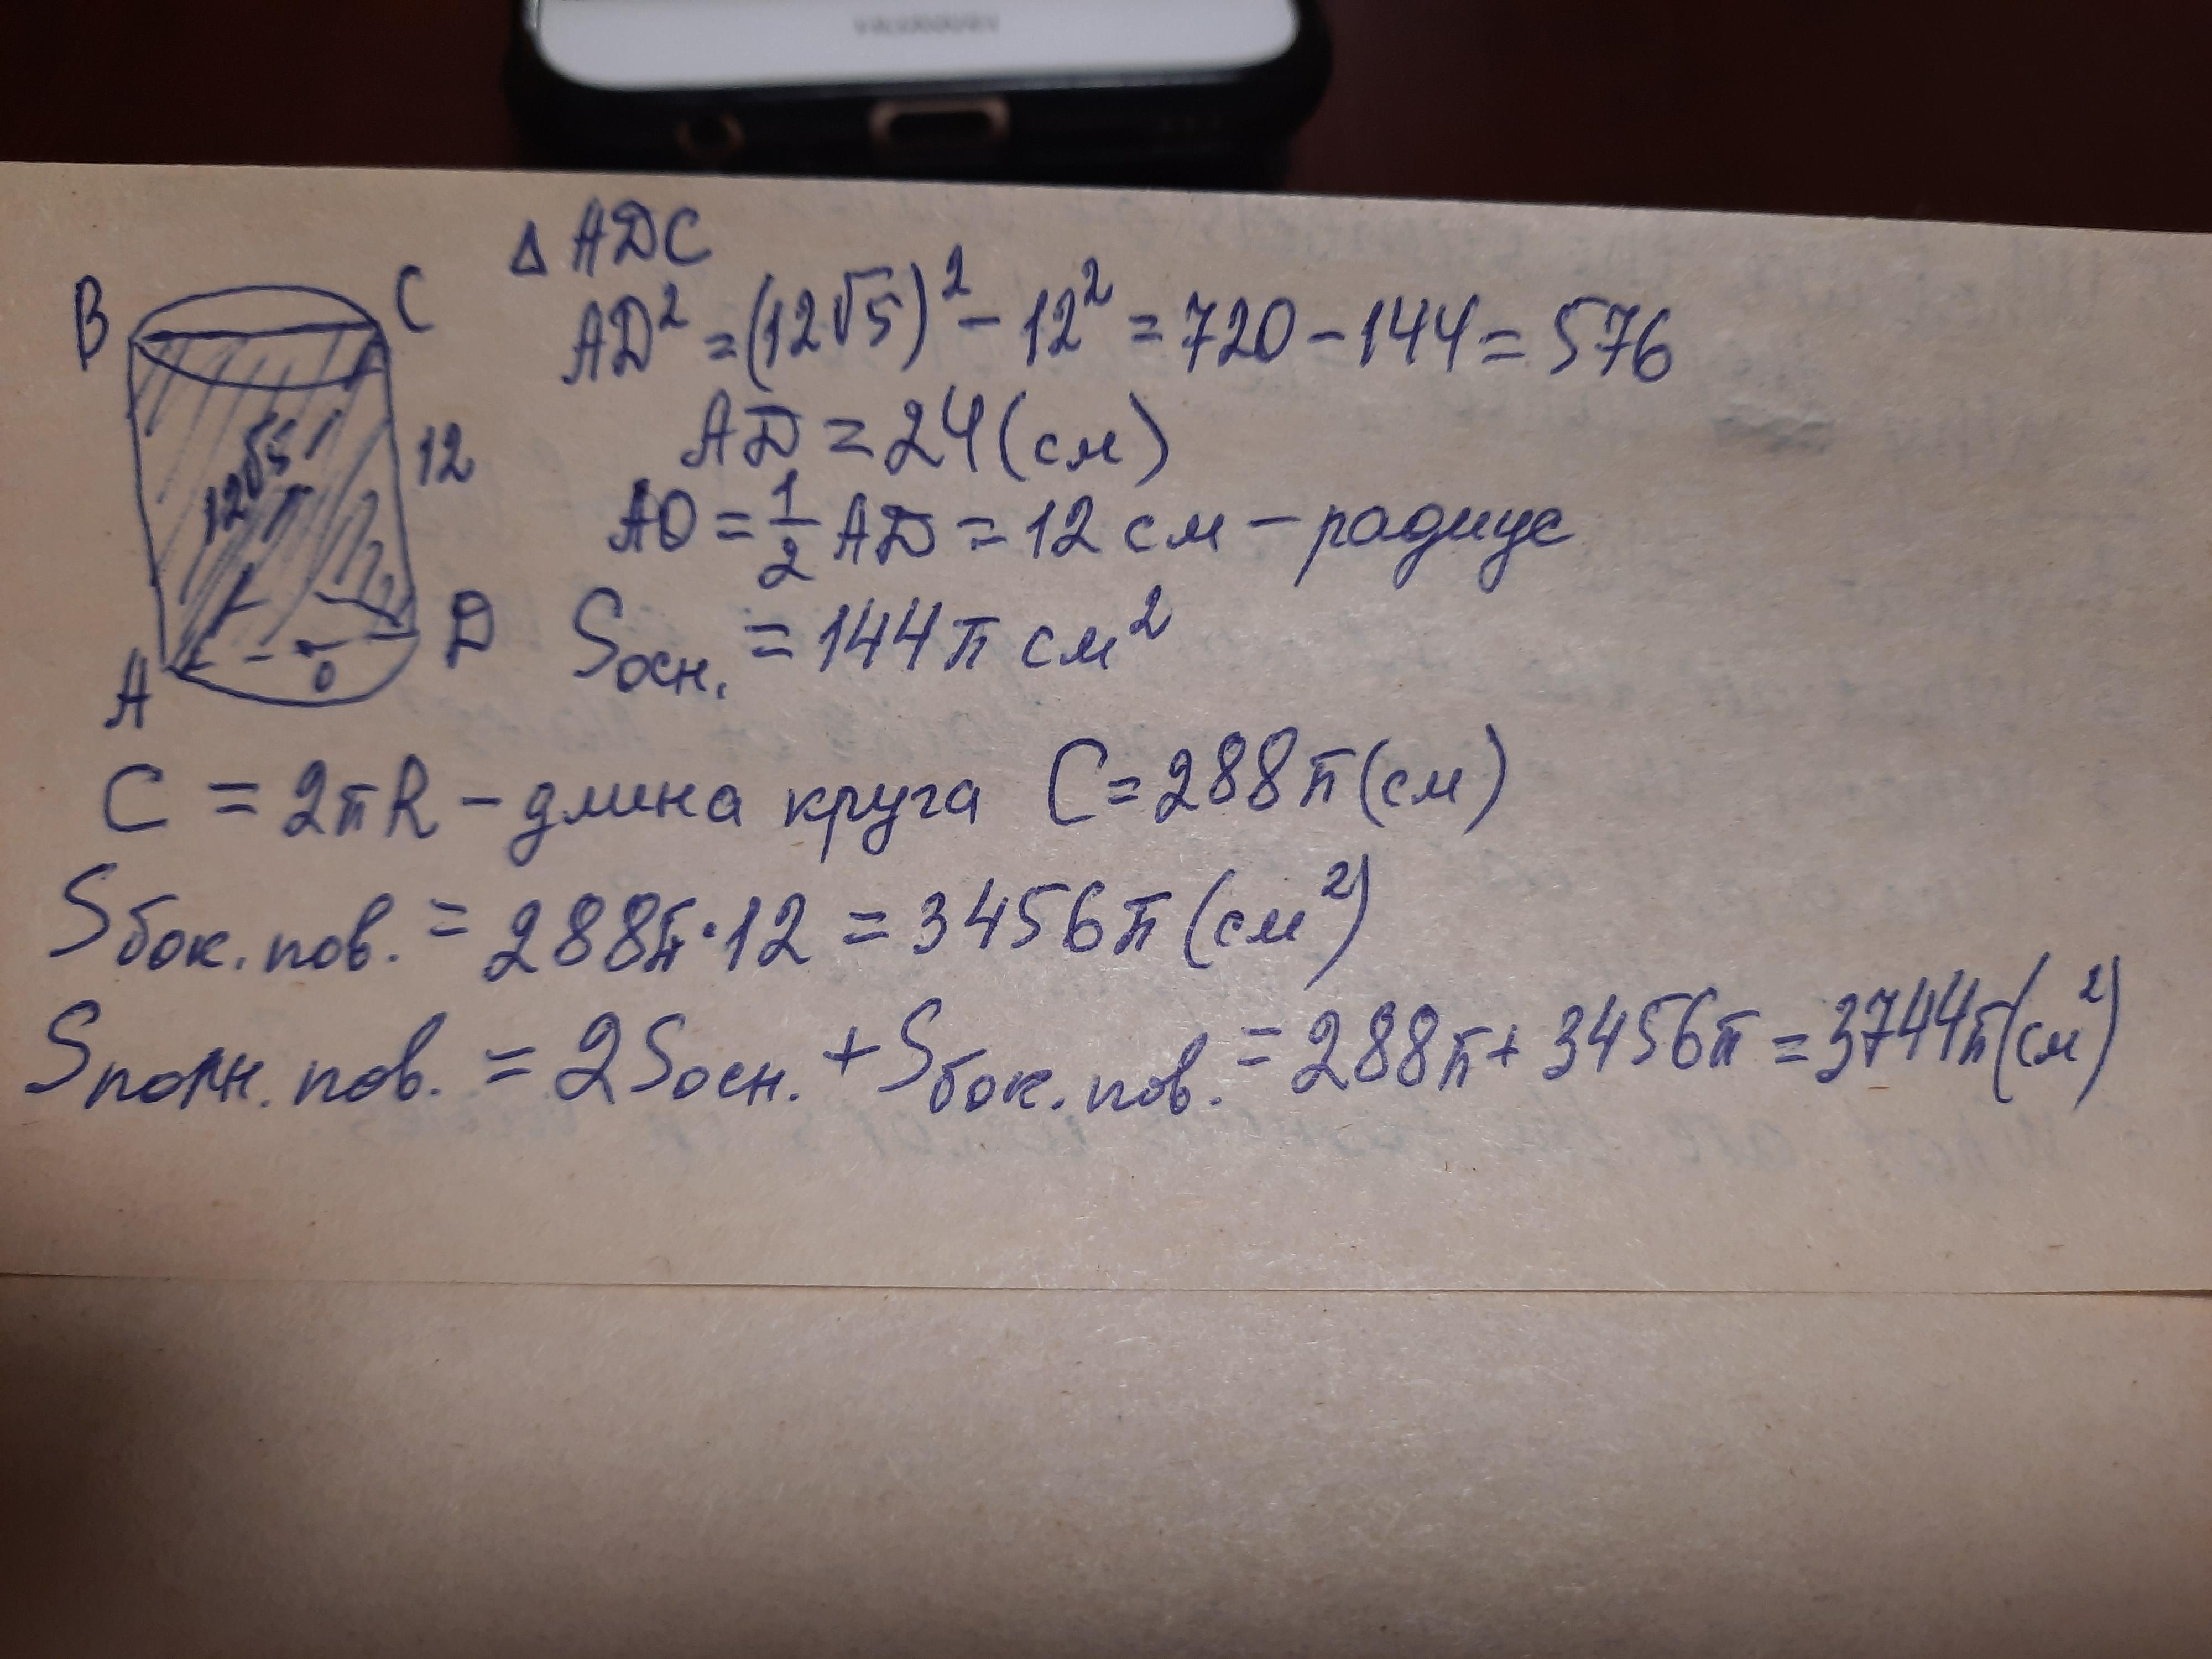 HUAWEI
Δ ADC
B
C
AD² = (12√5)² - 12² = 720 - 144 = 576
AD = 24 (см)
12√5
12
AO = 1/2 AD = 12 см - радиус
A
O
D
Sосн. = 144π см²
C = 2πR - длина круга C = 288π (см)
Sбок. пов. = 288π · 12 = 3456π (см²)
Sполн. пов. = 2Sосн. + Sбок. пов. = 288π + 3456π = 3744π (см²)